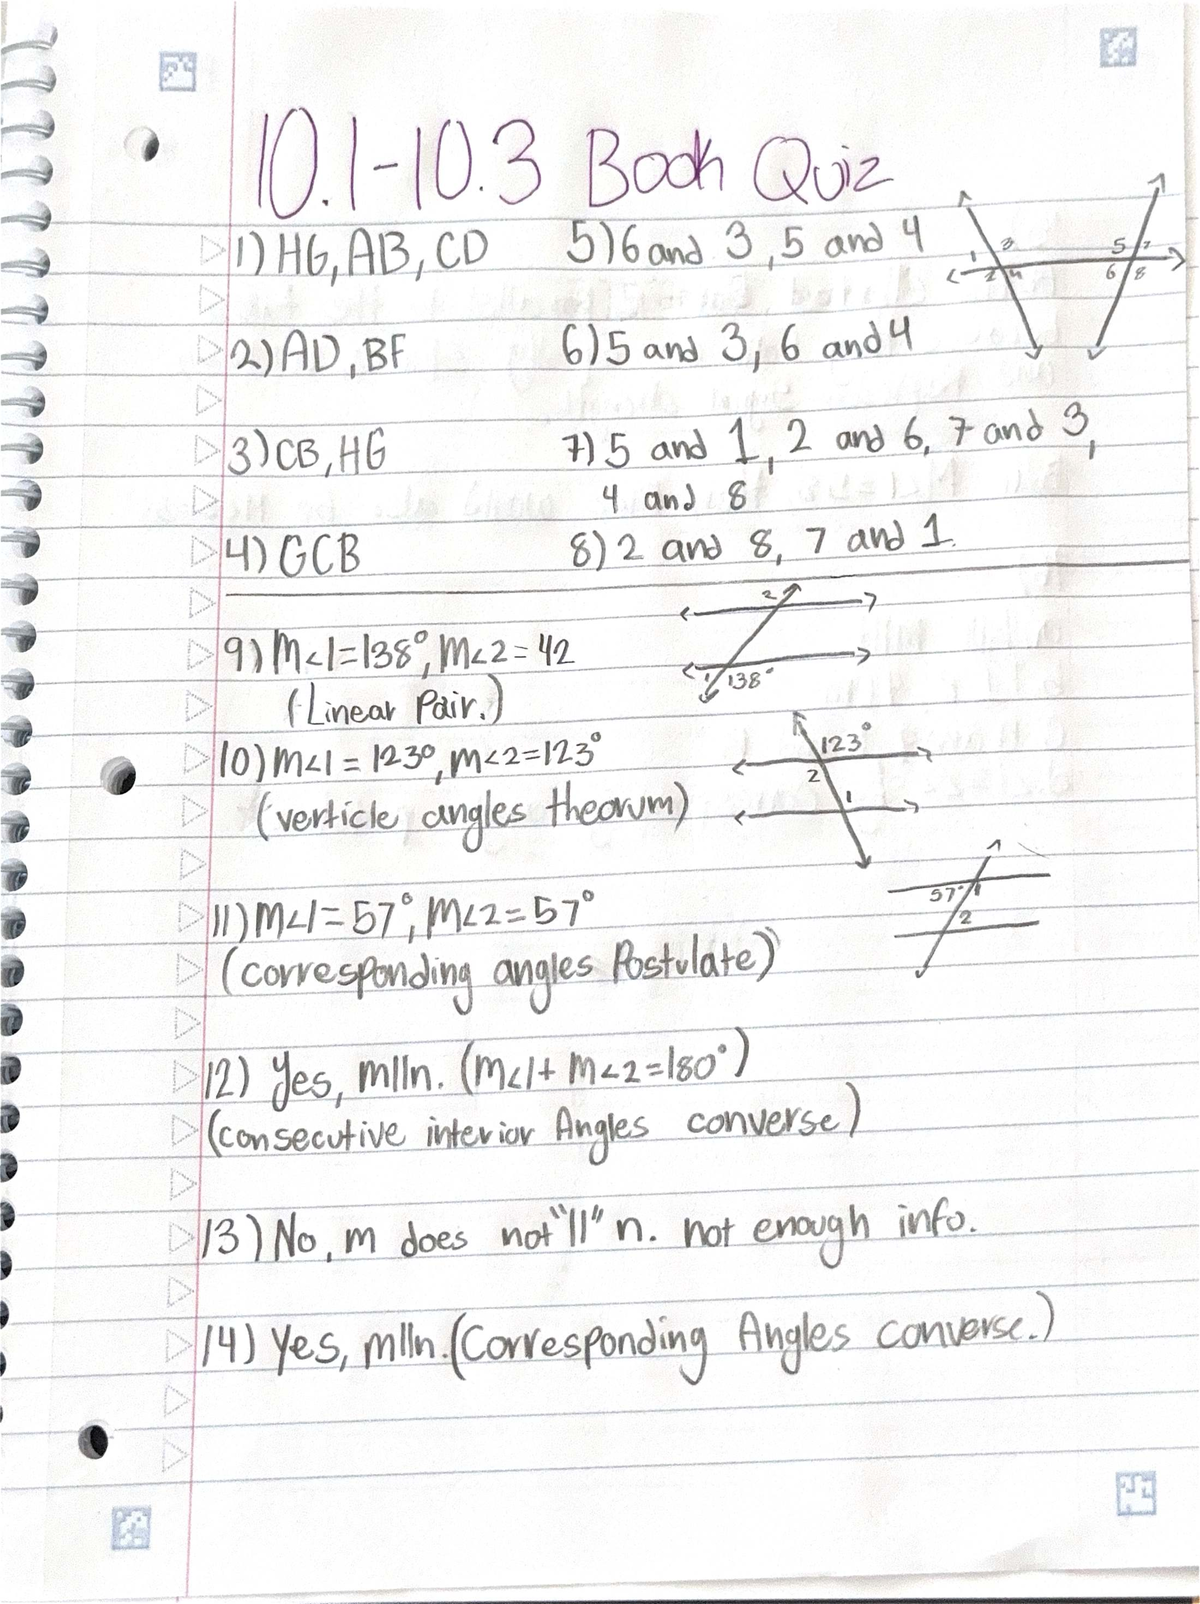 10.1-10.3 Book Quiz
1) HG, AB, CD
2) AD, BF
3) CB, HG
4) GCB
5) 6 and 3, 5 and 4
6) 5 and 3, 6 and 4
7) 5 and 1, 2 and 6, 7 and 3,
4 and 8
8) 2 and 8, 7 and 1.
1 3 5 7
2 4 6 8
9) m<1=138°, m<2=42
(Linear Pair.)
2
1 138°
10) m<1 = 123°, m<2=123°
(verticle angles theorum)
123°
2
1
11) m<1=57°, m<2=57°
(corresponding angles Postulate)
57° 1
2
12) Yes, m||n. (m<1+ m<2=180°)
(consecutive interior Angles converse)
13) No, m does not "||" n. not enough info.
14) Yes, m||n. (Corresponding Angles converse.)